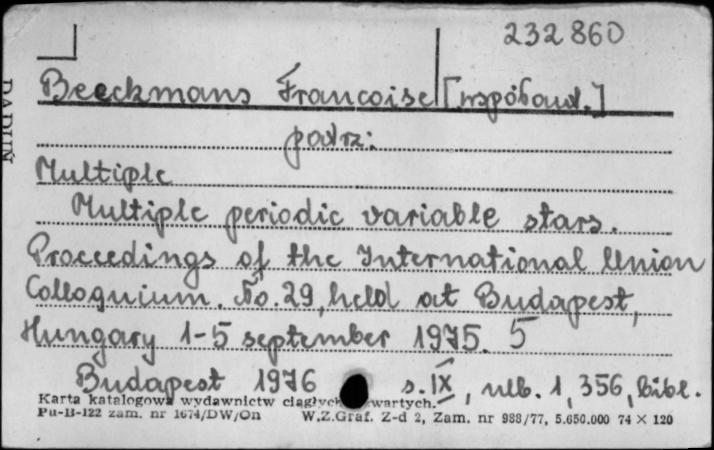 232 860
Beeckmans Francoise [współaut.]
patrz:
Multiple
Multiple periodic variable stars.
Proceedings of the International Union
Colloquium. No. 29, held at Budapest,
Hungary 1-5 september 1975. 5
Budapest 1976 s. IX, nlb. 1, 356, bibl.
Karta katalogowa wydawnictw ciągłych zwartych.
Pu-B-122 zam. nr 1674/DW/On W.Z.Graf. Z-d 2, Zam. nr 988/77, 5.650.000 74 × 120